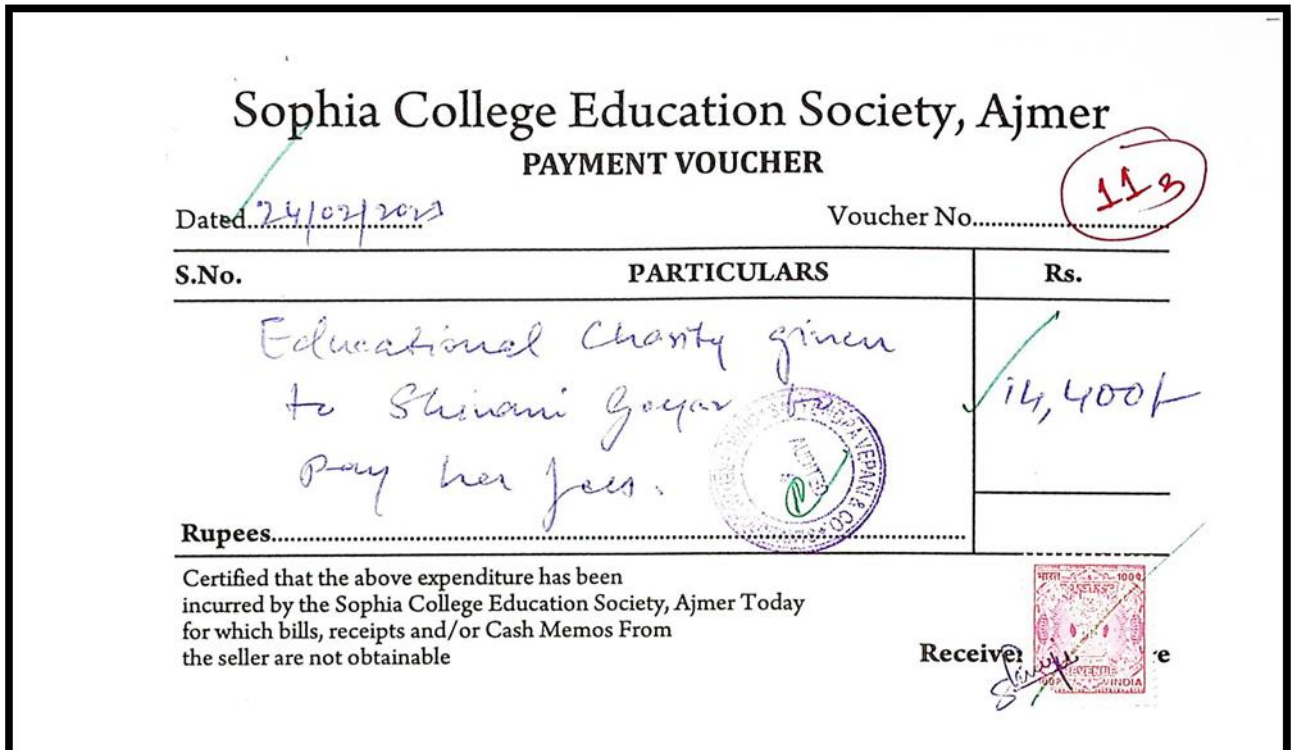 Sophia College Education Society, Ajmer
PAYMENT VOUCHER
Dated..24/02/2023
Voucher No. 113
S.No. PARTICULARS Rs.
Educational Charity given
to Shivani Goyar to
pay her fees.
14,400/-
VEPARI & CO.
Rupees
Certified that the above expenditure has been
incurred by the Sophia College Education Society, Ajmer Today
for which bills, receipts and/or Cash Memos From
the seller are not obtainable
भारत
REVENUE
INDIA